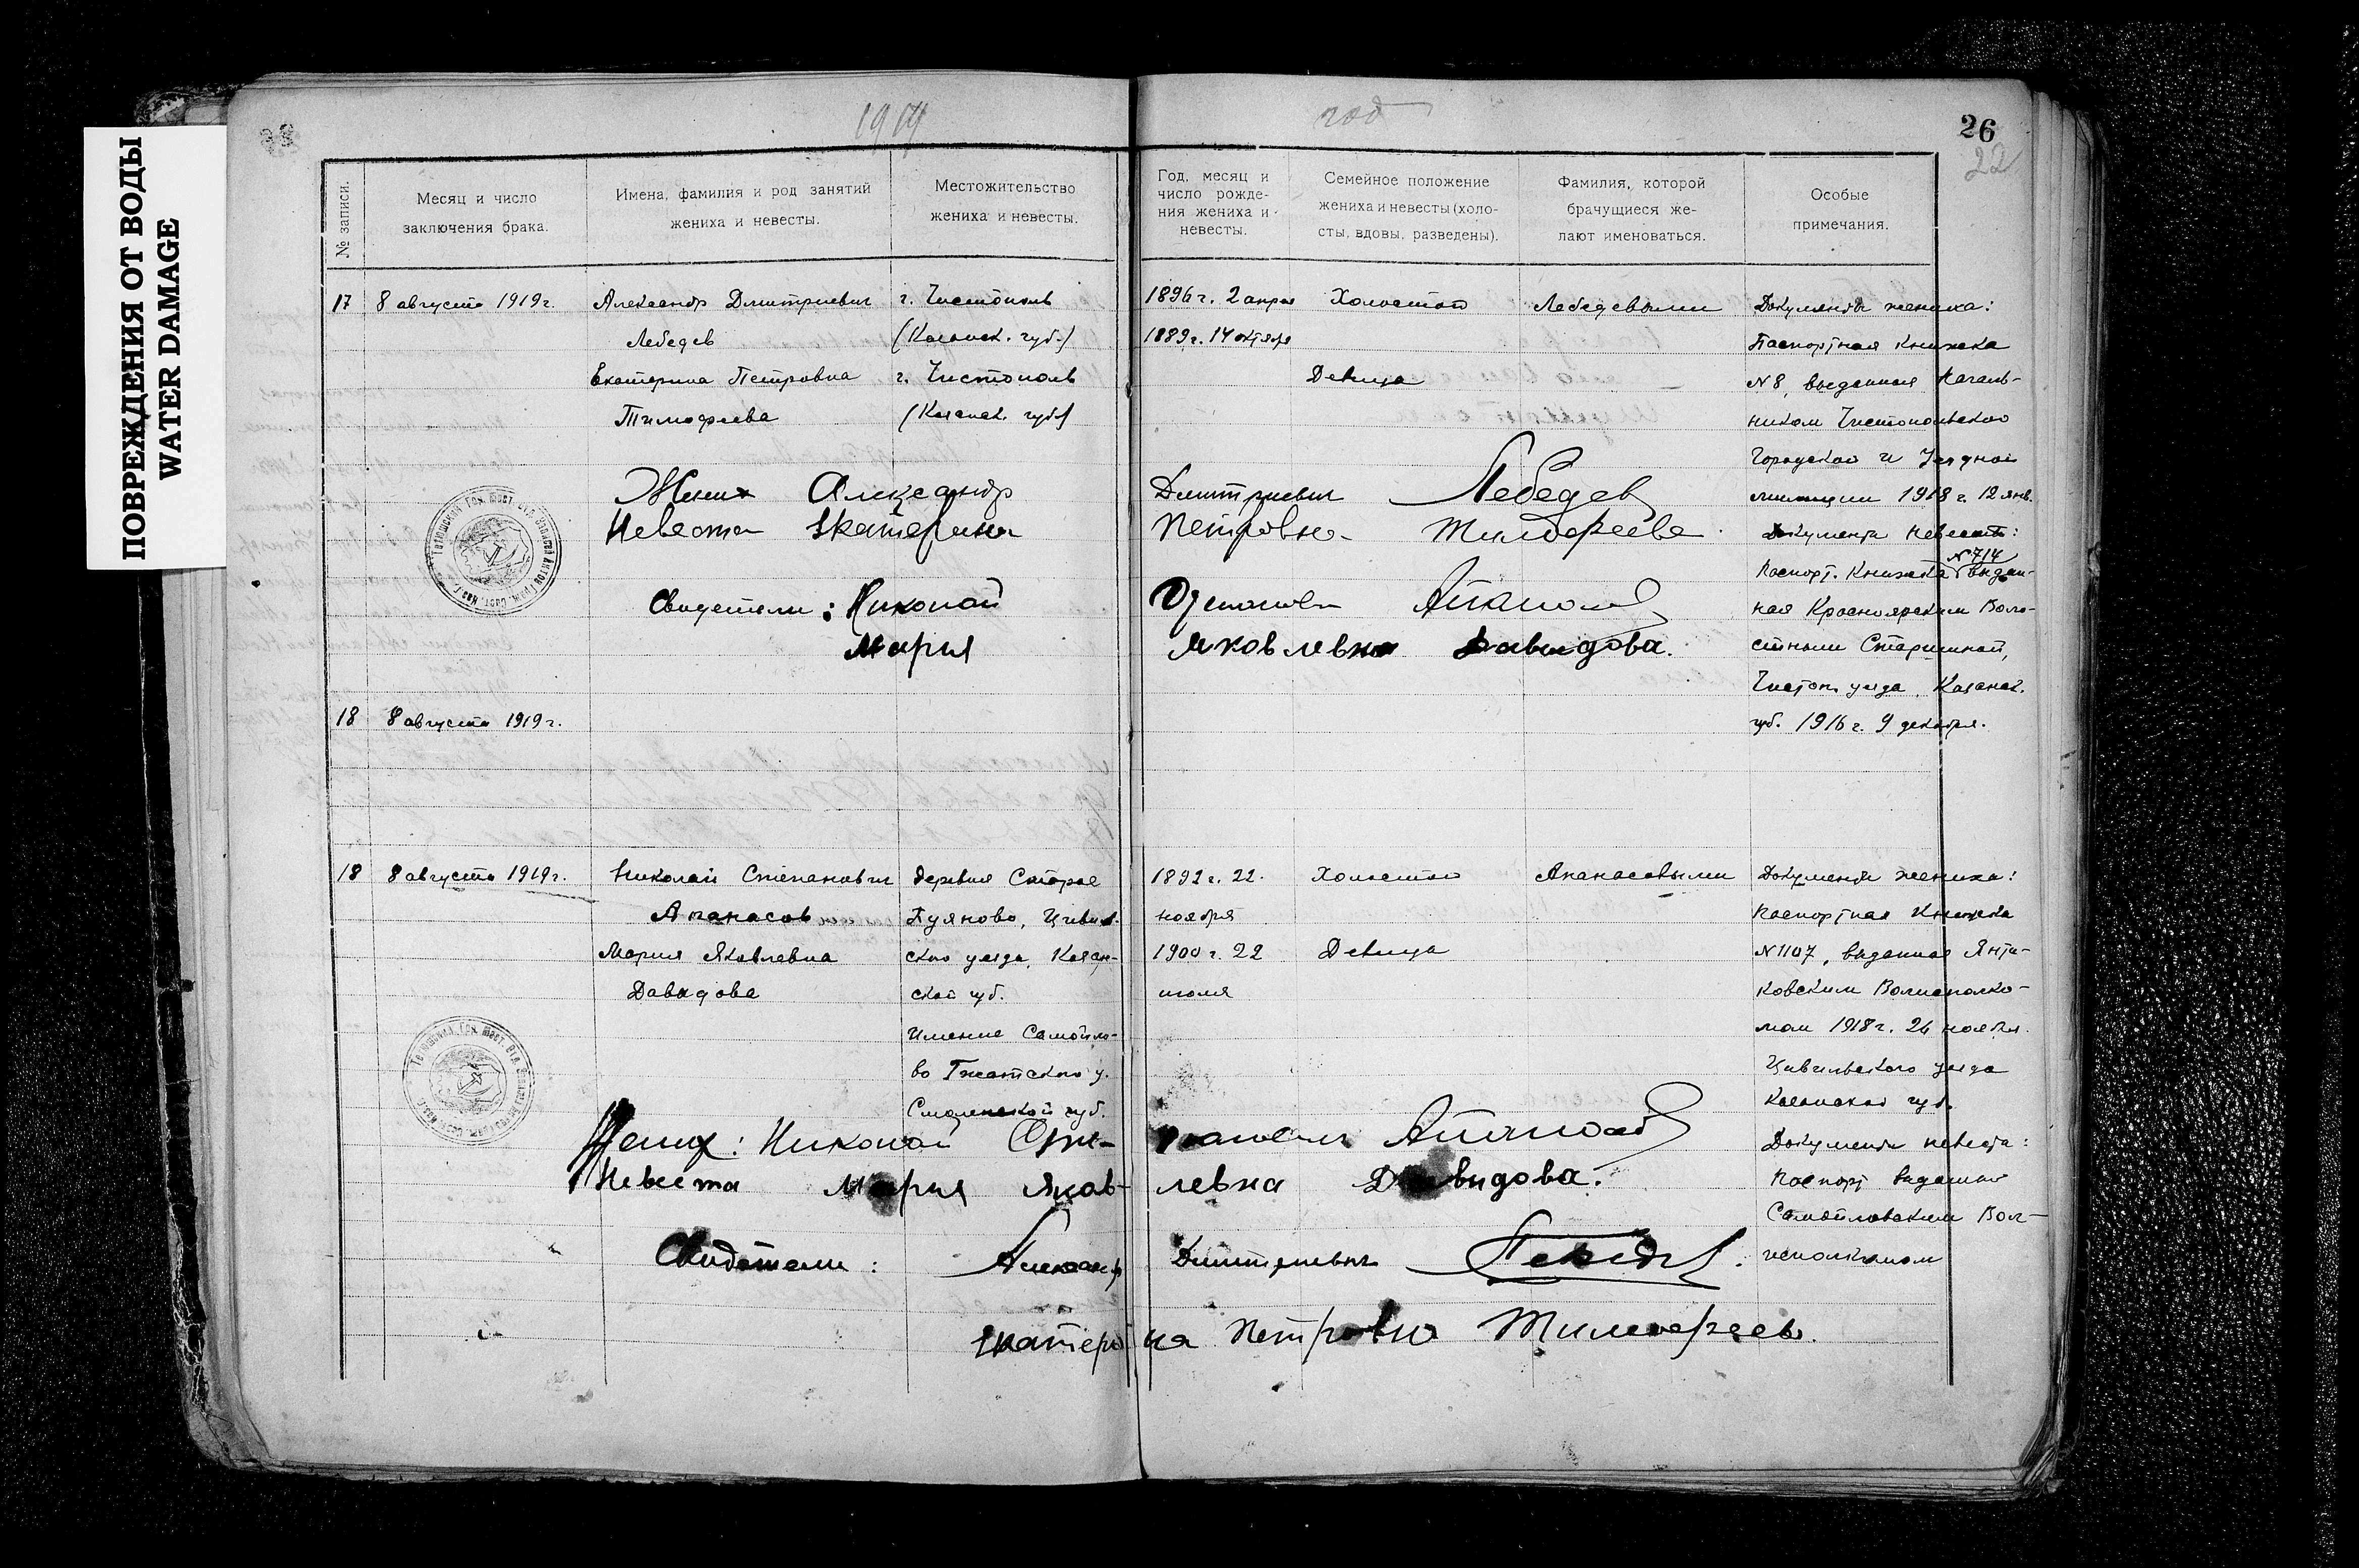 ПОВРЕЖДЕНИЯ ОТ ВОДЫ
WATER DAMAGE
1919 год
26
22
№ записи.
Месяц и число
заключения брака.
Имена, фамилия и род занятий
жениха и невесты.
Местожительство
жениха и невесты.
Год, месяц и
число рожде-
ния жениха и
невесты.
Семейное положение
жениха и невесты (холо-
сты, вдовы, разведены).
Фамилия, которой
брачущиеся же-
лают именоваться.
Особые
примечания.
17
8 августа 1919 г.
Александр Дмитриевич
Лебедев
Екатерина Петровна
Тимофеева
г. Чистополь
(Казанск. губ.)
г. Чистополь
(Казанск. губ.)
1896 г. 2 апреля
1889 г. 14 октября
Холостой
Девица
Лебедевыми
Документы жениха:
Паспортная книжка
N 8, выданная Началь-
ником Чистопольской
Городской и Уездной
милиции 1918 г. 12 янв.
Документы невесты:
Паспорт. Книжка N 714 выдан-
ная Красноярским Воло-
стным Старшиной,
Чистоп. уезда, Казанск.
губ. 1916 г. 9 декабря.
Жених Александр Дмитриевич Лебедев
Невеста Екатерина Петровна Тимофеева
Свидетели: Николай Степанович Апанасов
Мария Яковлевна Давыдова.
18
8 августа 1919 г.
18
8 августа 1919 г.
Николай Степанович
Апанасов
Мария Яковлевна
Давыдова
деревня Старое
Буяново, Цивиль-
ского уезда, Казан-
ской губ.
Имение Самойло-
во Гжатского у.
Смоленской губ.
1892 г. 22
ноября
1900 г. 22
июля
Холостой
Девица
Апанасовыми
Документы жениха:
Паспортная Книжка
N 1107, выданная Янти-
ковским Волисполко-
мом 1918 г. 26 ноября.
Цивильского уезда
Казанской губ.
Документы невесты:
Паспорт выданный
Самойловским Вол-
исполкомом
Жених: Николай Степанович Апанасов
Невеста Мария Яковлевна Давыдова.
Свидетели: Александр Дмитриевич Лебедев.
Екатерина Петровна Тимофеева.